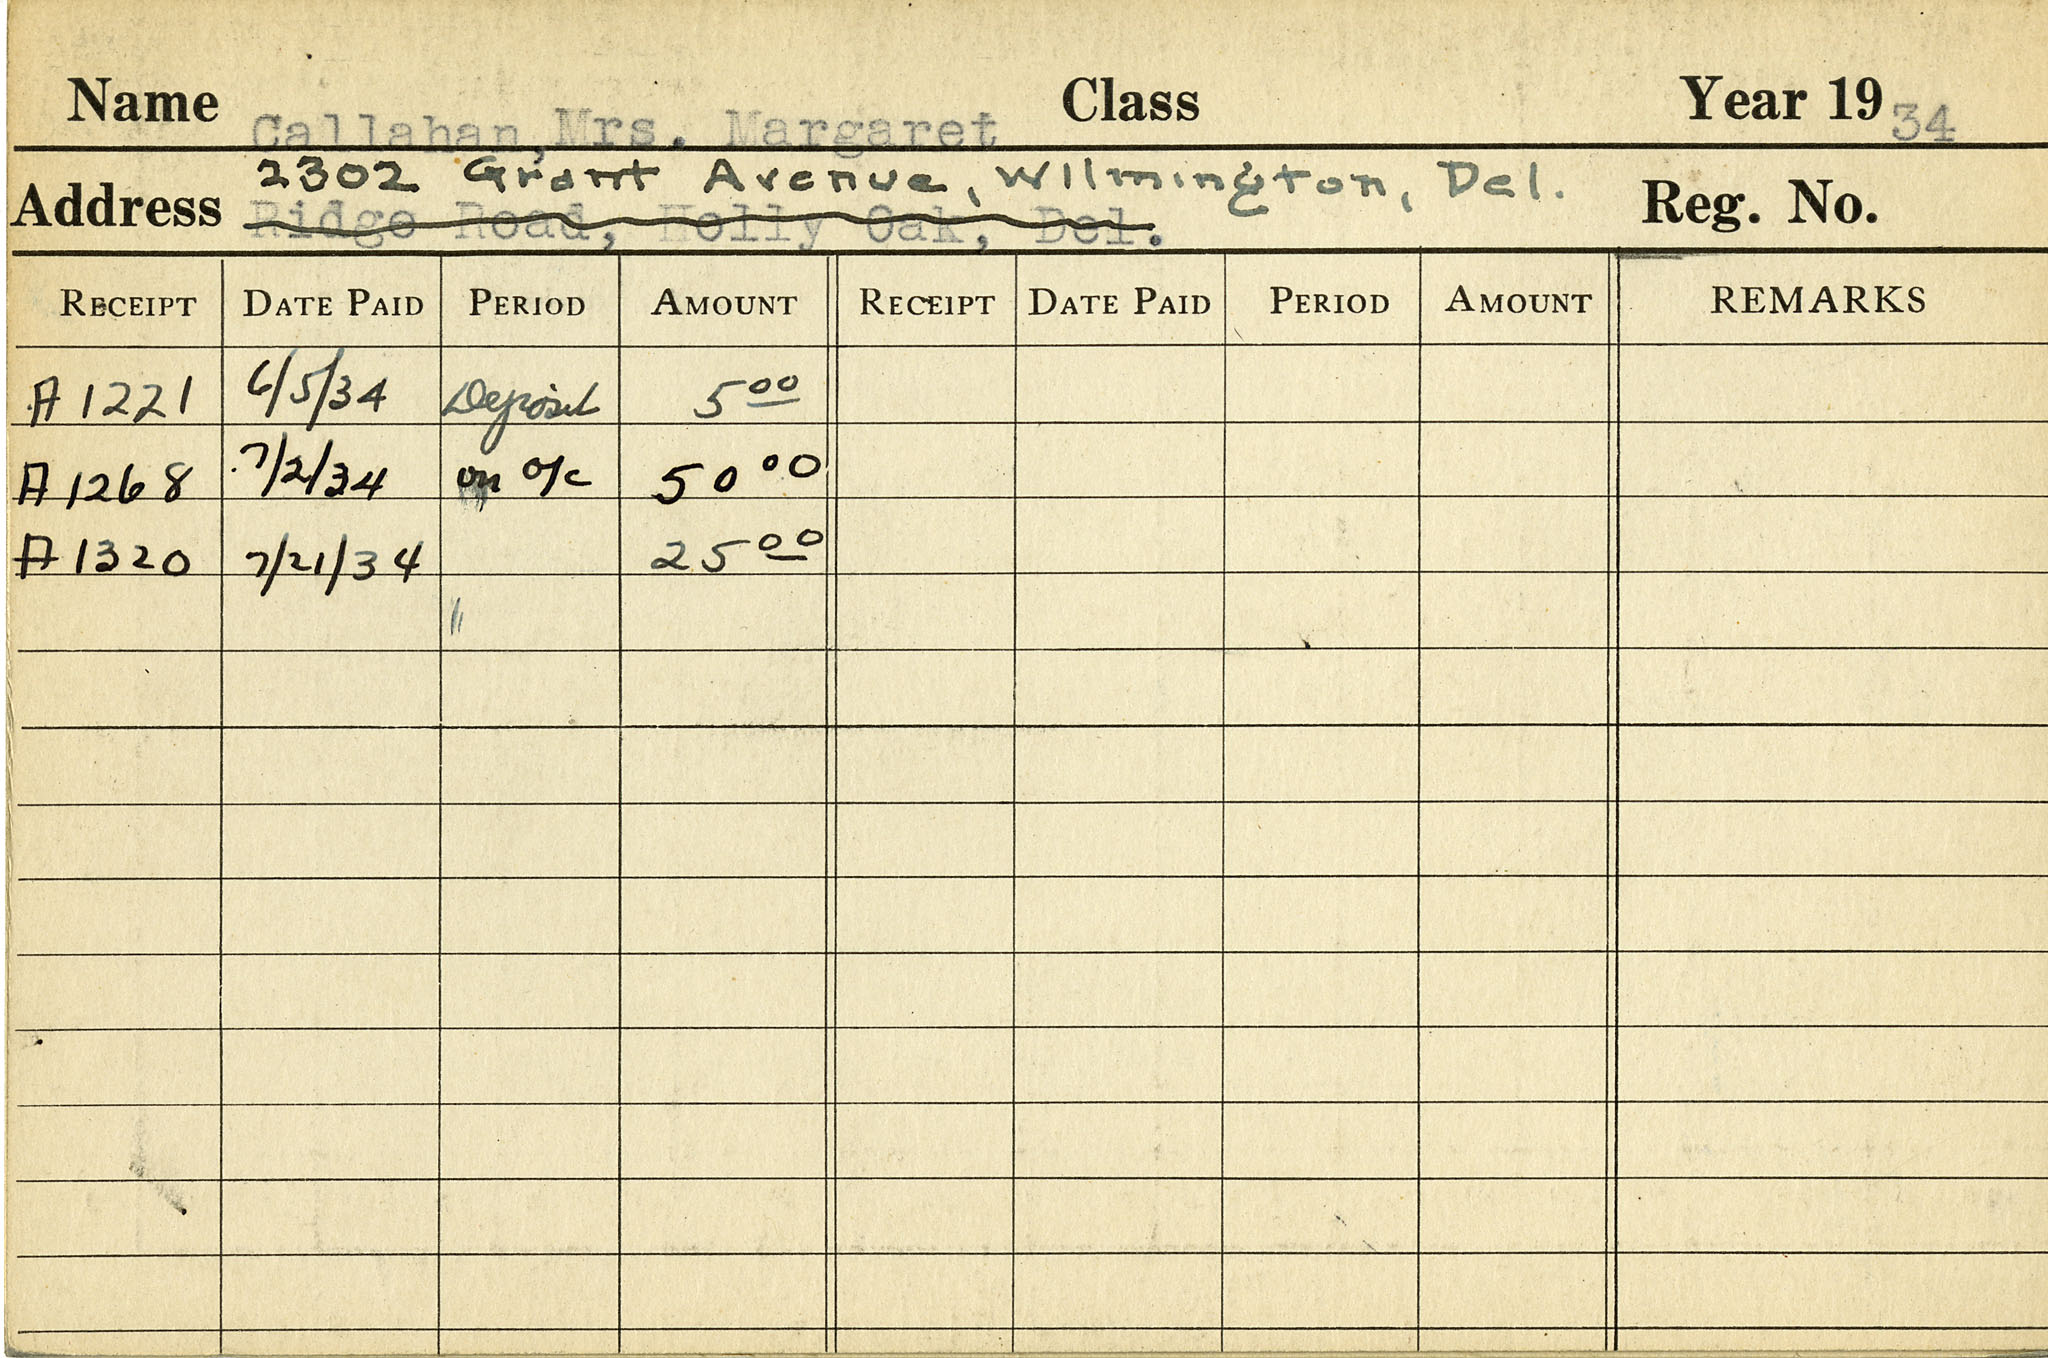 Name Callahan, Mrs. Margaret Class Year 19 34
2302 Grant Avenue, Wilmington, Del.
Address Ridge Road, Holly Oak, Del. Reg. No.
RECEIPT DATE PAID PERIOD AMOUNT RECEIPT DATE PAID PERIOD AMOUNT REMARKS
A 1221 6/5/34 Deposit 5 00
A 1268 7/2/34 on a/c 50 00
A 1320 7/21/34 25 00
"